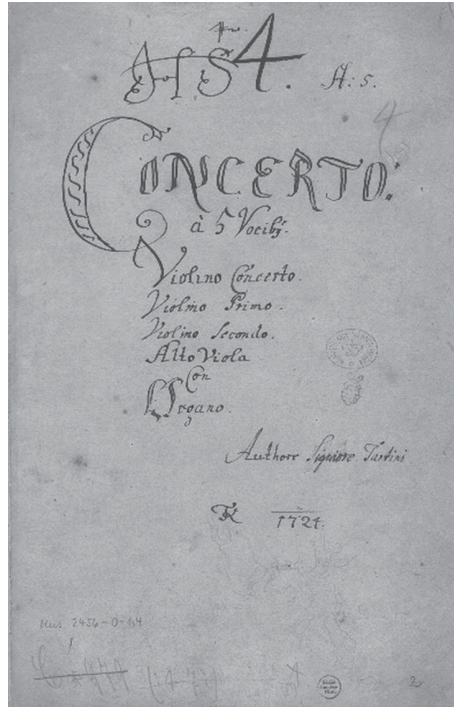 4. A: 5.
4
CONCERTO:
à 5 Vocibʒ.
Violino Concerto.
Violino Primo.
Violino Secondo.
Alto Viola
Con
Organo.
Authore Signiore Tartini
1724.
Mus. 2456-O-14
2